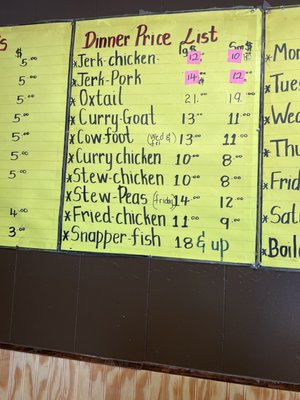 Dinner Price List
Lg$ Sm$
*Jerk-chicken- 12 10
*Jerk-Pork 14 12
*Oxtail 21.00 19.00
*Curry-Goat 13.00 11.00
*Cowfoot (Wed & fri) 13.00 11.00
*Curry chicken 10.00 8.00
*Stew-chicken 10.00 8.00
*Stew-Peas (friday) 14.00 12.00
*Fried-chicken 11.00 9.00
*Snapper-fish 18 & up
$
5.00
5.00
5.00
5.00
5.00
5.00
5.00
4.00
3.00
Mon
Tues
Wed
Thu
Frid
Sat
Boil